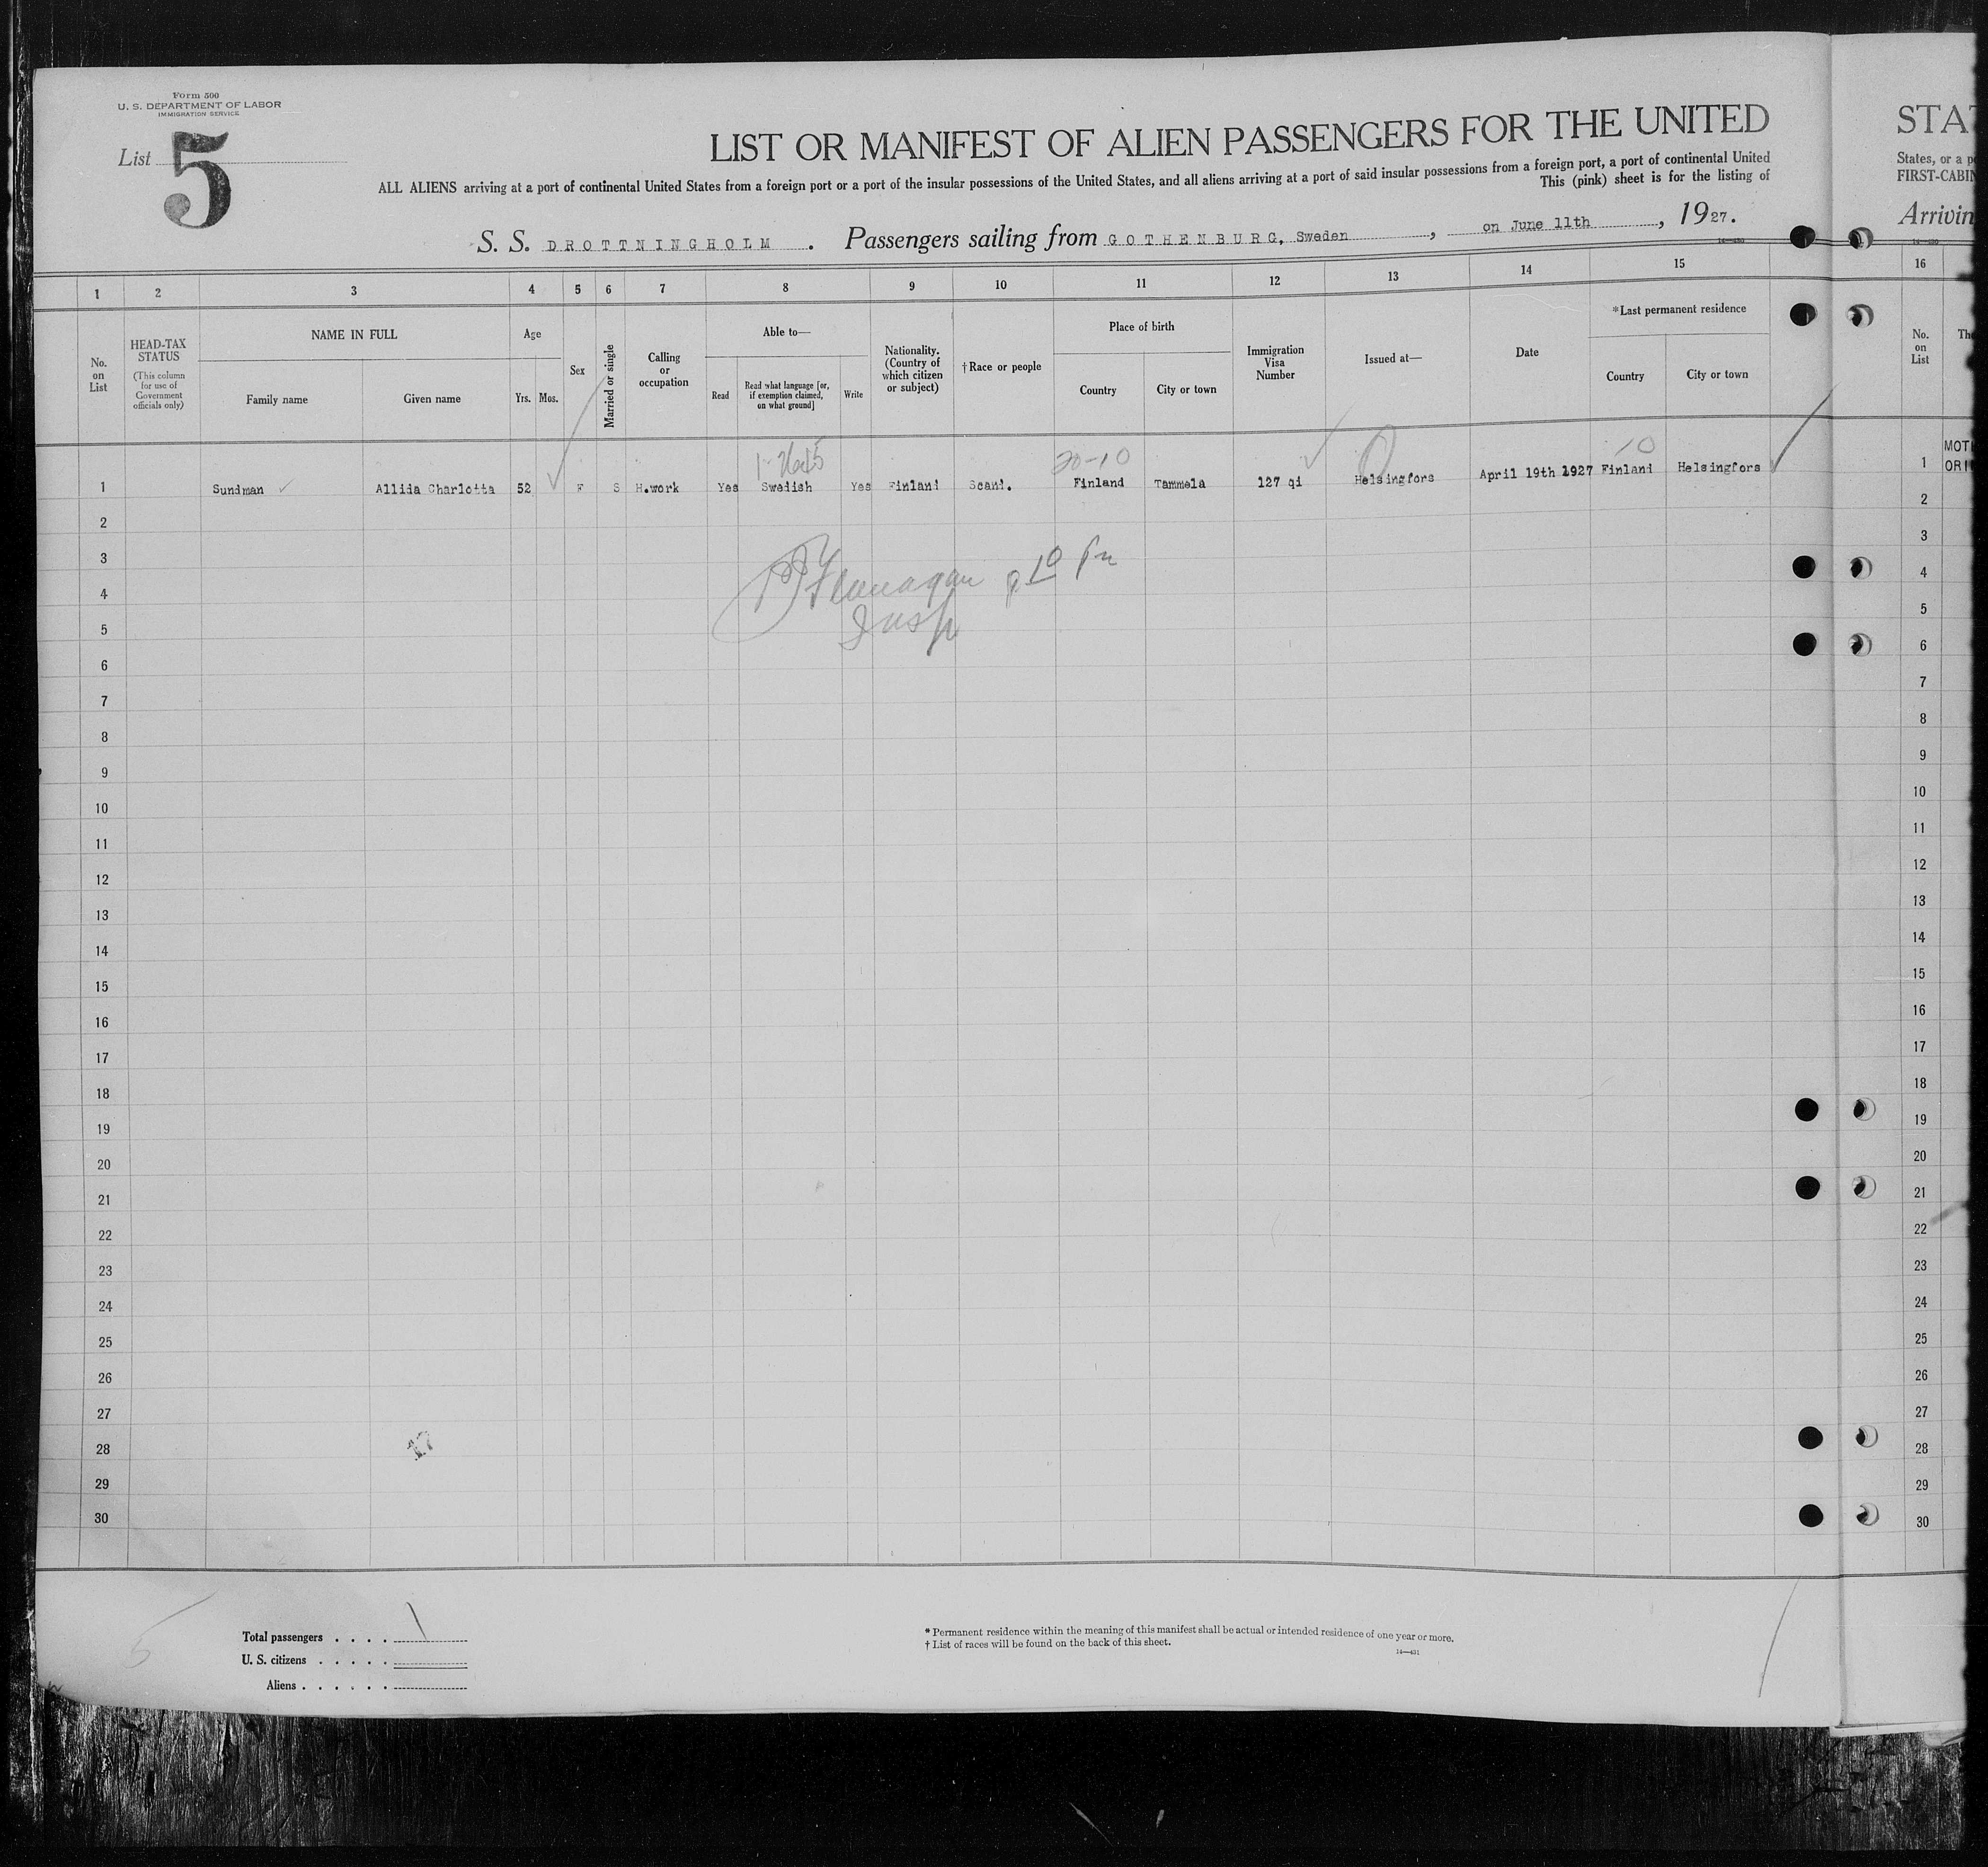 Form 500
U. S. DEPARTMENT OF LABOR
IMMIGRATION SERVICE
List 5
LIST OR MANIFEST OF ALIEN PASSENGERS FOR THE UNITED
ALL ALIENS arriving at a port of continental United States from a foreign port or a port of the insular possessions of the United States, and all aliens arriving at a port of said insular possessions from a foreign port, a port of continental United
This (pink) sheet is for the listing of
S. S. DROTTNINGHOLM . Passengers sailing from GOTHENBURG, Sweden , on June 11th , 1927.
STA
States, or a p
FIRST-CABIN
Arrivin
1 2 3 4 5 6 7 8 9 10 11 12 13 14 15 16
No. on List
HEAD-TAX STATUS
(This column for use of Government officials only)
NAME IN FULL
Family name
Given name
Age
Yrs. Mos.
Sex
Married or single
Calling or occupation
Able to—
Read
Read what language [or, if exemption claimed, on what ground]
Write
Nationality. (Country of which citizen or subject)
†Race or people
Place of birth
Country
City or town
Immigration Visa Number
Issued at—
Date
*Last permanent residence
Country
City or town
No. on List
Th
20-10
10
1 Sundman Allida Charlotta 52 F S H.work Yes Swedish Yes Finland Scand. Finland Tammela 127 qi Helsingfors April 19th 1927 Finland Helsingfors 1
MOT
ORI
2 2
3 3
4 4
5 5
Flanagan
Insp
6 6
7 7
8 8
9 9
10 10
11 11
12 12
13 13
14 14
15 15
16 16
17 17
18 18
19 19
20 20
21 21
22 22
23 23
24 24
25 25
26 26
27 27
28 28
17
29 29
30 30
5
Total passengers . . . . 1
U. S. citizens . . . . .
Aliens . . . . . .
* Permanent residence within the meaning of this manifest shall be actual or intended residence of one year or more.
† List of races will be found on the back of this sheet.
14—431